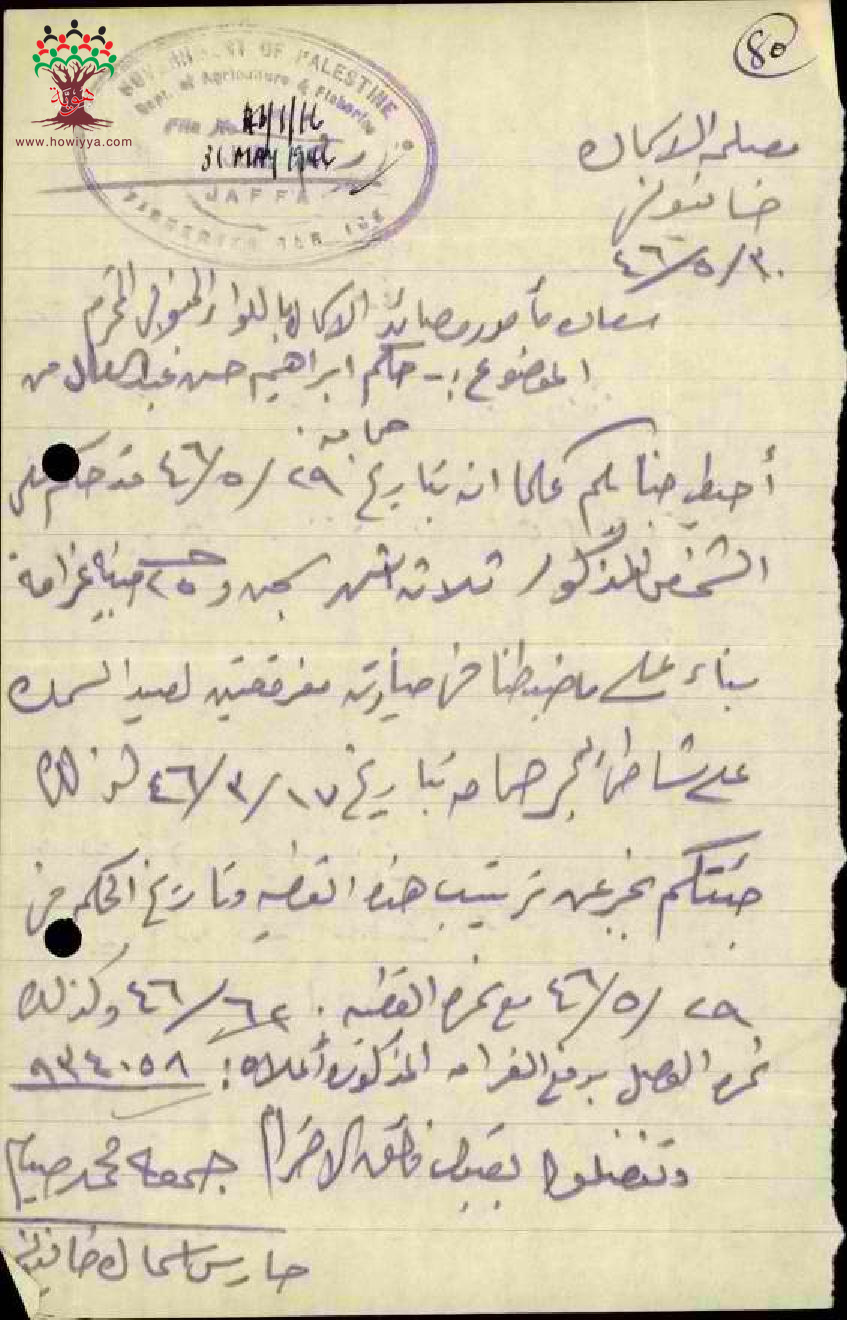 80
GOVERNMENT OF PALESTINE
Dept. of Agriculture & Fisheries
File No. 1/16
31 MAY 1946
JAFFA
www.howiyya.com
مصلحة الاسماك
خانيونس
٤٦/٥/٣٠
سعادة مأمور مصائد الاسماك باللواء الجنوبي المحترم
الموضوع :- حكم ابراهيم حسن عبد العال من
حمامه .
أحيط جنابكم علما انه بتاريخ ٤٦/٥/٢٩ قد حكم على
الشخص المذكور ثلاثة اشهر سجن و ٢٥ جنيه غرامة
بناء على ما ضبطنا في حيازته مفرقعتين لصيد السمك
على شاطئ بحر حمامه بتاريخ ٤٦/٣/١٧ لذلك
جئتكم بخبر عن ترتيب هذه القضيه وتاريخ الحكم في
٤٦/٥/٢٩ مع نمرة القضيه . ٤٦/٦٢ وكذلك
نمرة الوصل بدفع الغرامه المذكورة أعلاه : ٩٣٤٠٥٨
وتفضلوا بقبول فائق الاحترام جمعه محمد صيام
حارس اسماك خانيونس